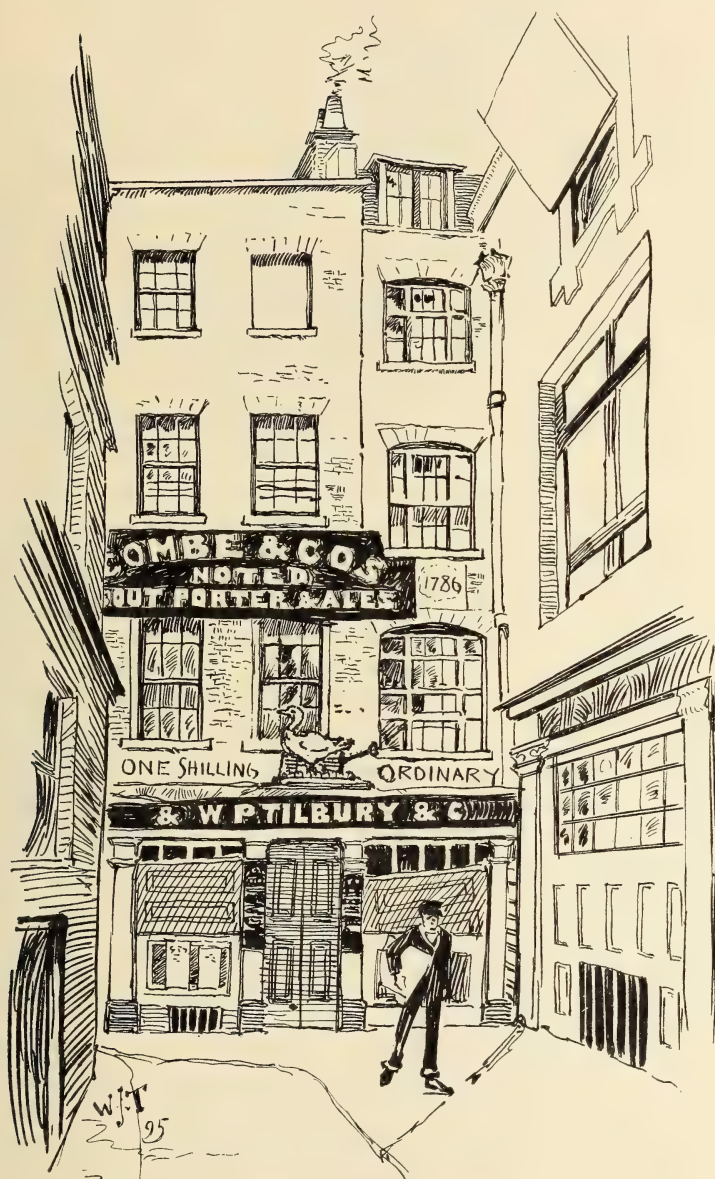 OMBE & COS
NOTED
OUT PORTER & ALES
1786
ONE SHILLING ORDINARY
& W. P. TILBURY & C
W.J.T
95